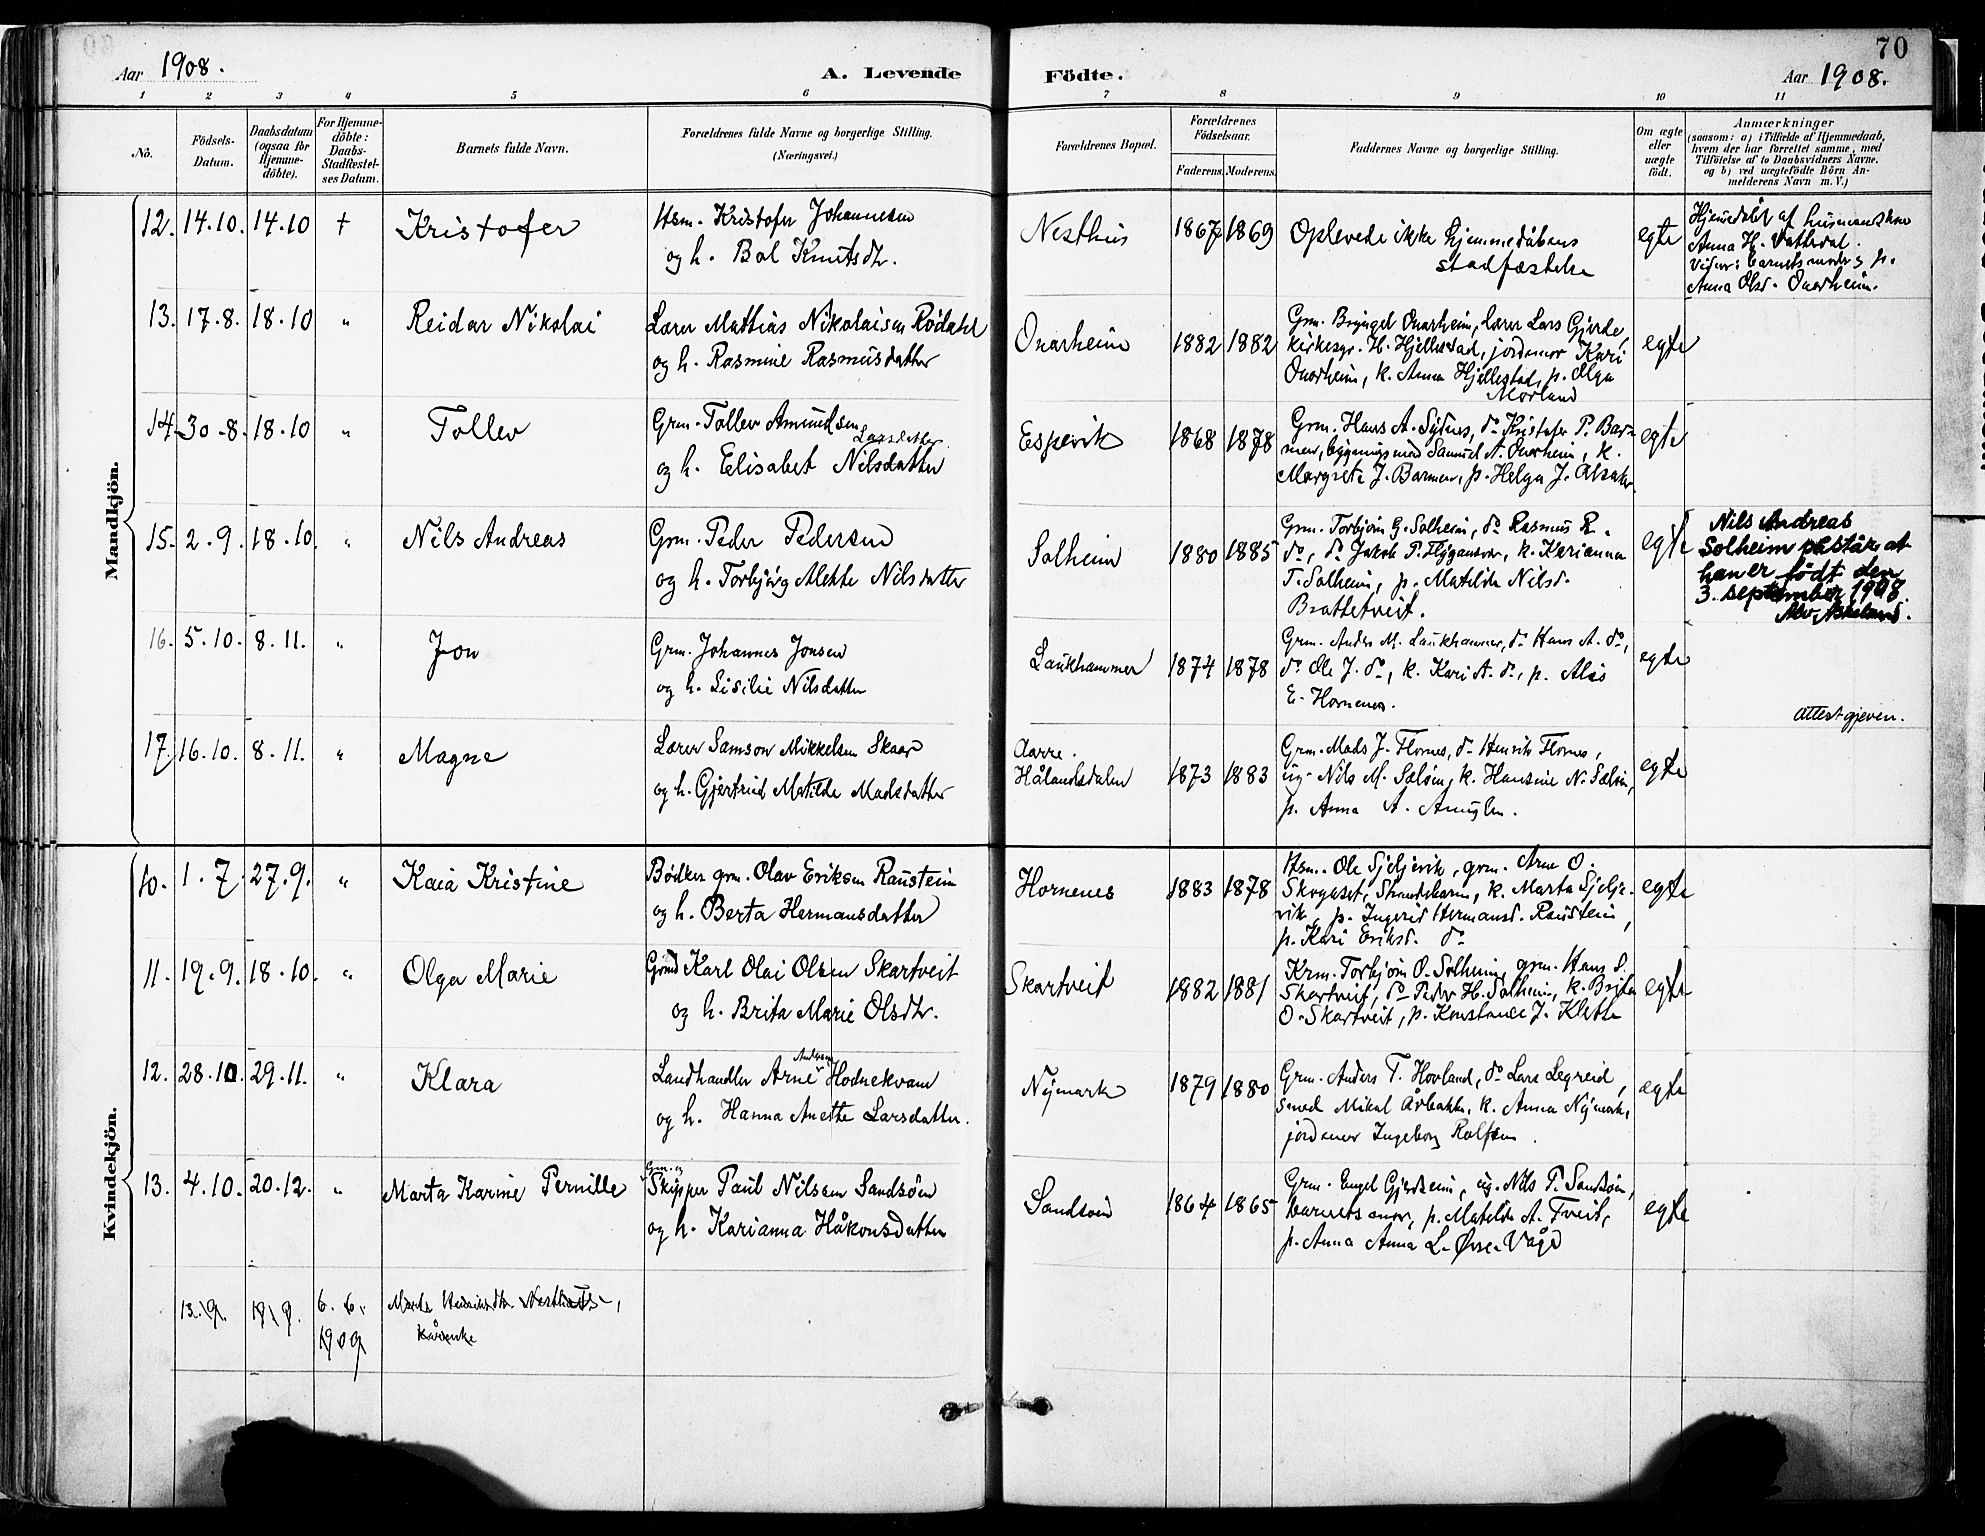 70
Aar 1908. A. Levende Födte. Aar 1908.
1 2 3 4 5 6 7 8 9 10 11
No.
Födsels-
Datum.
Daabsdatum
(ogsaa for
Hjemme-
döbte).
For Hjemme-
döbte:
Daabs-
Stadfæstel-
ses Datum.
Barnets fulde Navn.
Forældrenes fulde Navne og borgerlige Stilling.
(Næringsvei.)
Forældrenes Bopæl.
Forældrenes
Födselsaar.
Faderens. Moderens.
Faddernes Navne og borgerlige Stilling.
Om ægte
eller
uægte
födt.
Anmærkninger
(saasom: a) i Tilfælde af Hjemmedaab,
hvem der har forrettet samme, med
Tilföielse af to Daabsvidners Navne.
og b) ved uægtefödte Börn An-
melderens Navn m. V.)
Mandkjön.
12. 14.10. 14.10 † Kristofer
Hsm. Kristofer Johannesen
og h. Bol Knutsdtr.
Nesthus 1867 1869
Oplevede ikke hjemmedåbens
stadfæstelse
egte
Hjemedøbt af husmandskone
Anna H. Vattedal.
Vidner: barnets moder og p.
Anna Olsd. Onarheim.
13. 17.8. 18.10 " Reidar Nikolai
Lærer Mattias Nikolaisen Rödahl
og h. Rasmine Rasmusdatter
Onarheim 1882 1882
Grm. Brynjel Onarheim, lærer Lars Gjerde,
kirkesgr. H. Hjellestad, jordemor Kari
Onarheim, k. Anna Hjellestad, p. Olga
Morland
egte
14. 30.8. 18.10 " Tollev
Grm. Tollev Amundsen
Larsdatter
og h. Elisabet Nilsdatter
Espevik 1868 1878
Grm. Hans A. Sydnes, do Kristofer P. Bar-
men, bygningsmand Samuel A. Onarheim, k.
Margrete J. Barmen, p. Helga J. Alsaker
egte
15. 2.9. 18.10. " Nils Andreas
Grm. Peder Pedersen
og h. Torbjörg Alette Nilsdatter
Solheim 1880 1885
Grm. Torbjörn G. Solheim, do Rasmus R.
do, do Jakob P. Flygansvær, k. Karianna
T. Solheim, p. Matilda Nilsd.
Brattetveit.
egte
Nils Andreas
Solheim påstår at
han er födt den
3. september 1908.
16. 5.10. 8.11. " Jon
Grm. Johannes Jonsen
og h. Sisilie Nilsdatter
Laukhammer 1874 1878
Grm. Anders M. Laukhammer, do Hans A. do,
do Ole J. do, k. Kari A. do, p. Alis
E. Hornenes.
egte
Attest gjeven.
17. 16.10. 8.11. " Magne
Lærer Samson Mikkelsen Skaar
og h. Gjertrud Matilde Madsdatter
Aarre.
Hålandsdalen 1873 1883
Grm. Mads J. Flornes, do Henrik Flornes,
ug. Nils M. Sælöen, k. Hansine N. Sælöen,
p. Anna A. Anuglen.
egte
Kvindekjön.
10. 1.7 27.9. " Kaia Kristine
Bödker grm. Olav Eriksen Raustein
og h. Berta Hermansdatter
Hornenes 1883 1878
Hsm. Ole Sjeljevik, grm. Arne O.
Skogaset, Strandebarm, k. Marta Sjelje-
vik, p. Ingerid Hermansd. Raustein,
p. Kari Eriksd. do
egte
11. 19.9. 18.10. " Olga Marie
Karl Olai Olsen Skartveit
og h. Brita Marie Olsdtr.
Skartveit 1882 1881
Krm. Torbjörn O. Solheim, grm. Hans S.
Skartveit, do Peder H. Solheim, k. Brita
O. Skartveit, p. Konstanse J. Klette
egte
12. 28.10. 29.11. " Klara
Andersen
Landhandler Arne Hodnekvam
og h. Hanna Anette Larsdatter.
Nymark 1879 1880
Grm. Anders T. Hovland, do Lars Legreid,
smed Mikal Årbakke, k. Anna Nymark,
jordemor Ingeborg Rolfsen.
egte
13. 4.10. 20.12. " Marta Karine Pernille
Grm. og
Skipper Paul Nilsen Sandsöen
og h. Karianna Håkonsdatter
Sandsöen 1864 1865
Grm. Engel Gjerdseim, ug. Nils P. Sandsöen,
barnets mor, p. Matilda A. Tveit,
p. Anna Anna L. Övre-Våge
egte
13.9. 19.9. 6.6.
1909